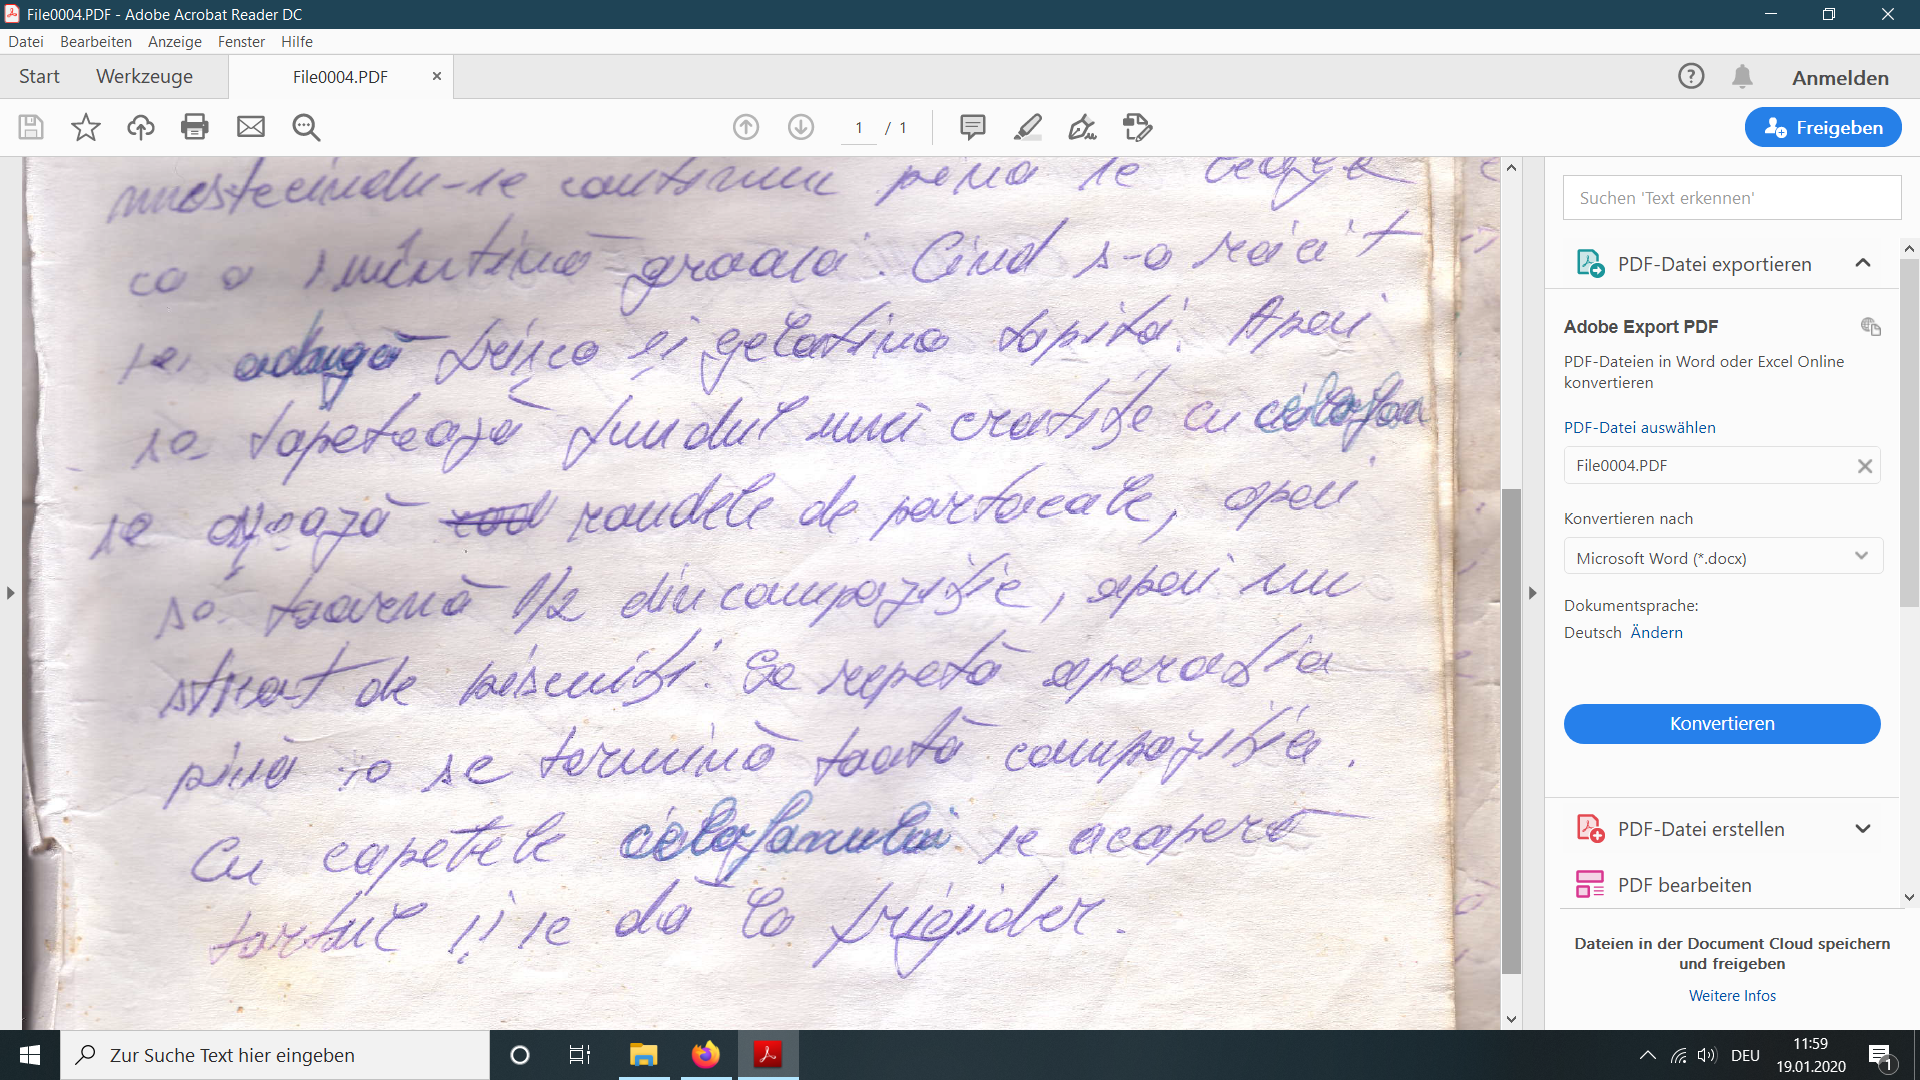 File0004.PDF - Adobe Acrobat Reader DC
Datei Bearbeiten Anzeige Fenster Hilfe
Start Werkzeuge File0004.PDF Anmelden
1 / 1 Freigeben
mestecindu-se continuu pena se leagă
ca o smîntină groasa. Cînd s-a răcit
se adugă frișca și gelatina topită. Apoi
se tapetează fundul unei cratiţe cu celofan
se așează rondele de portocale, apoi
se toarnă 1/2 din compoziţie, apoi un
strat de biscuiţi. Se repetă operaţia
pină se termină toată compoziţia.
Cu capetele celofanului se acoperă
tortul și se dă la frigider.
Suchen 'Text erkennen'
PDF-Datei exportieren
Adobe Export PDF
PDF-Dateien in Word oder Excel Online
konvertieren
PDF-Datei auswählen
File0004.PDF
Konvertieren nach
Microsoft Word (*.docx)
Dokumentsprache:
Deutsch Ändern
Konvertieren
PDF-Datei erstellen
PDF bearbeiten
Dateien in der Document Cloud speichern
und freigeben
Weitere Infos
Zur Suche Text hier eingeben
DEU
11:59
19.01.2020
1